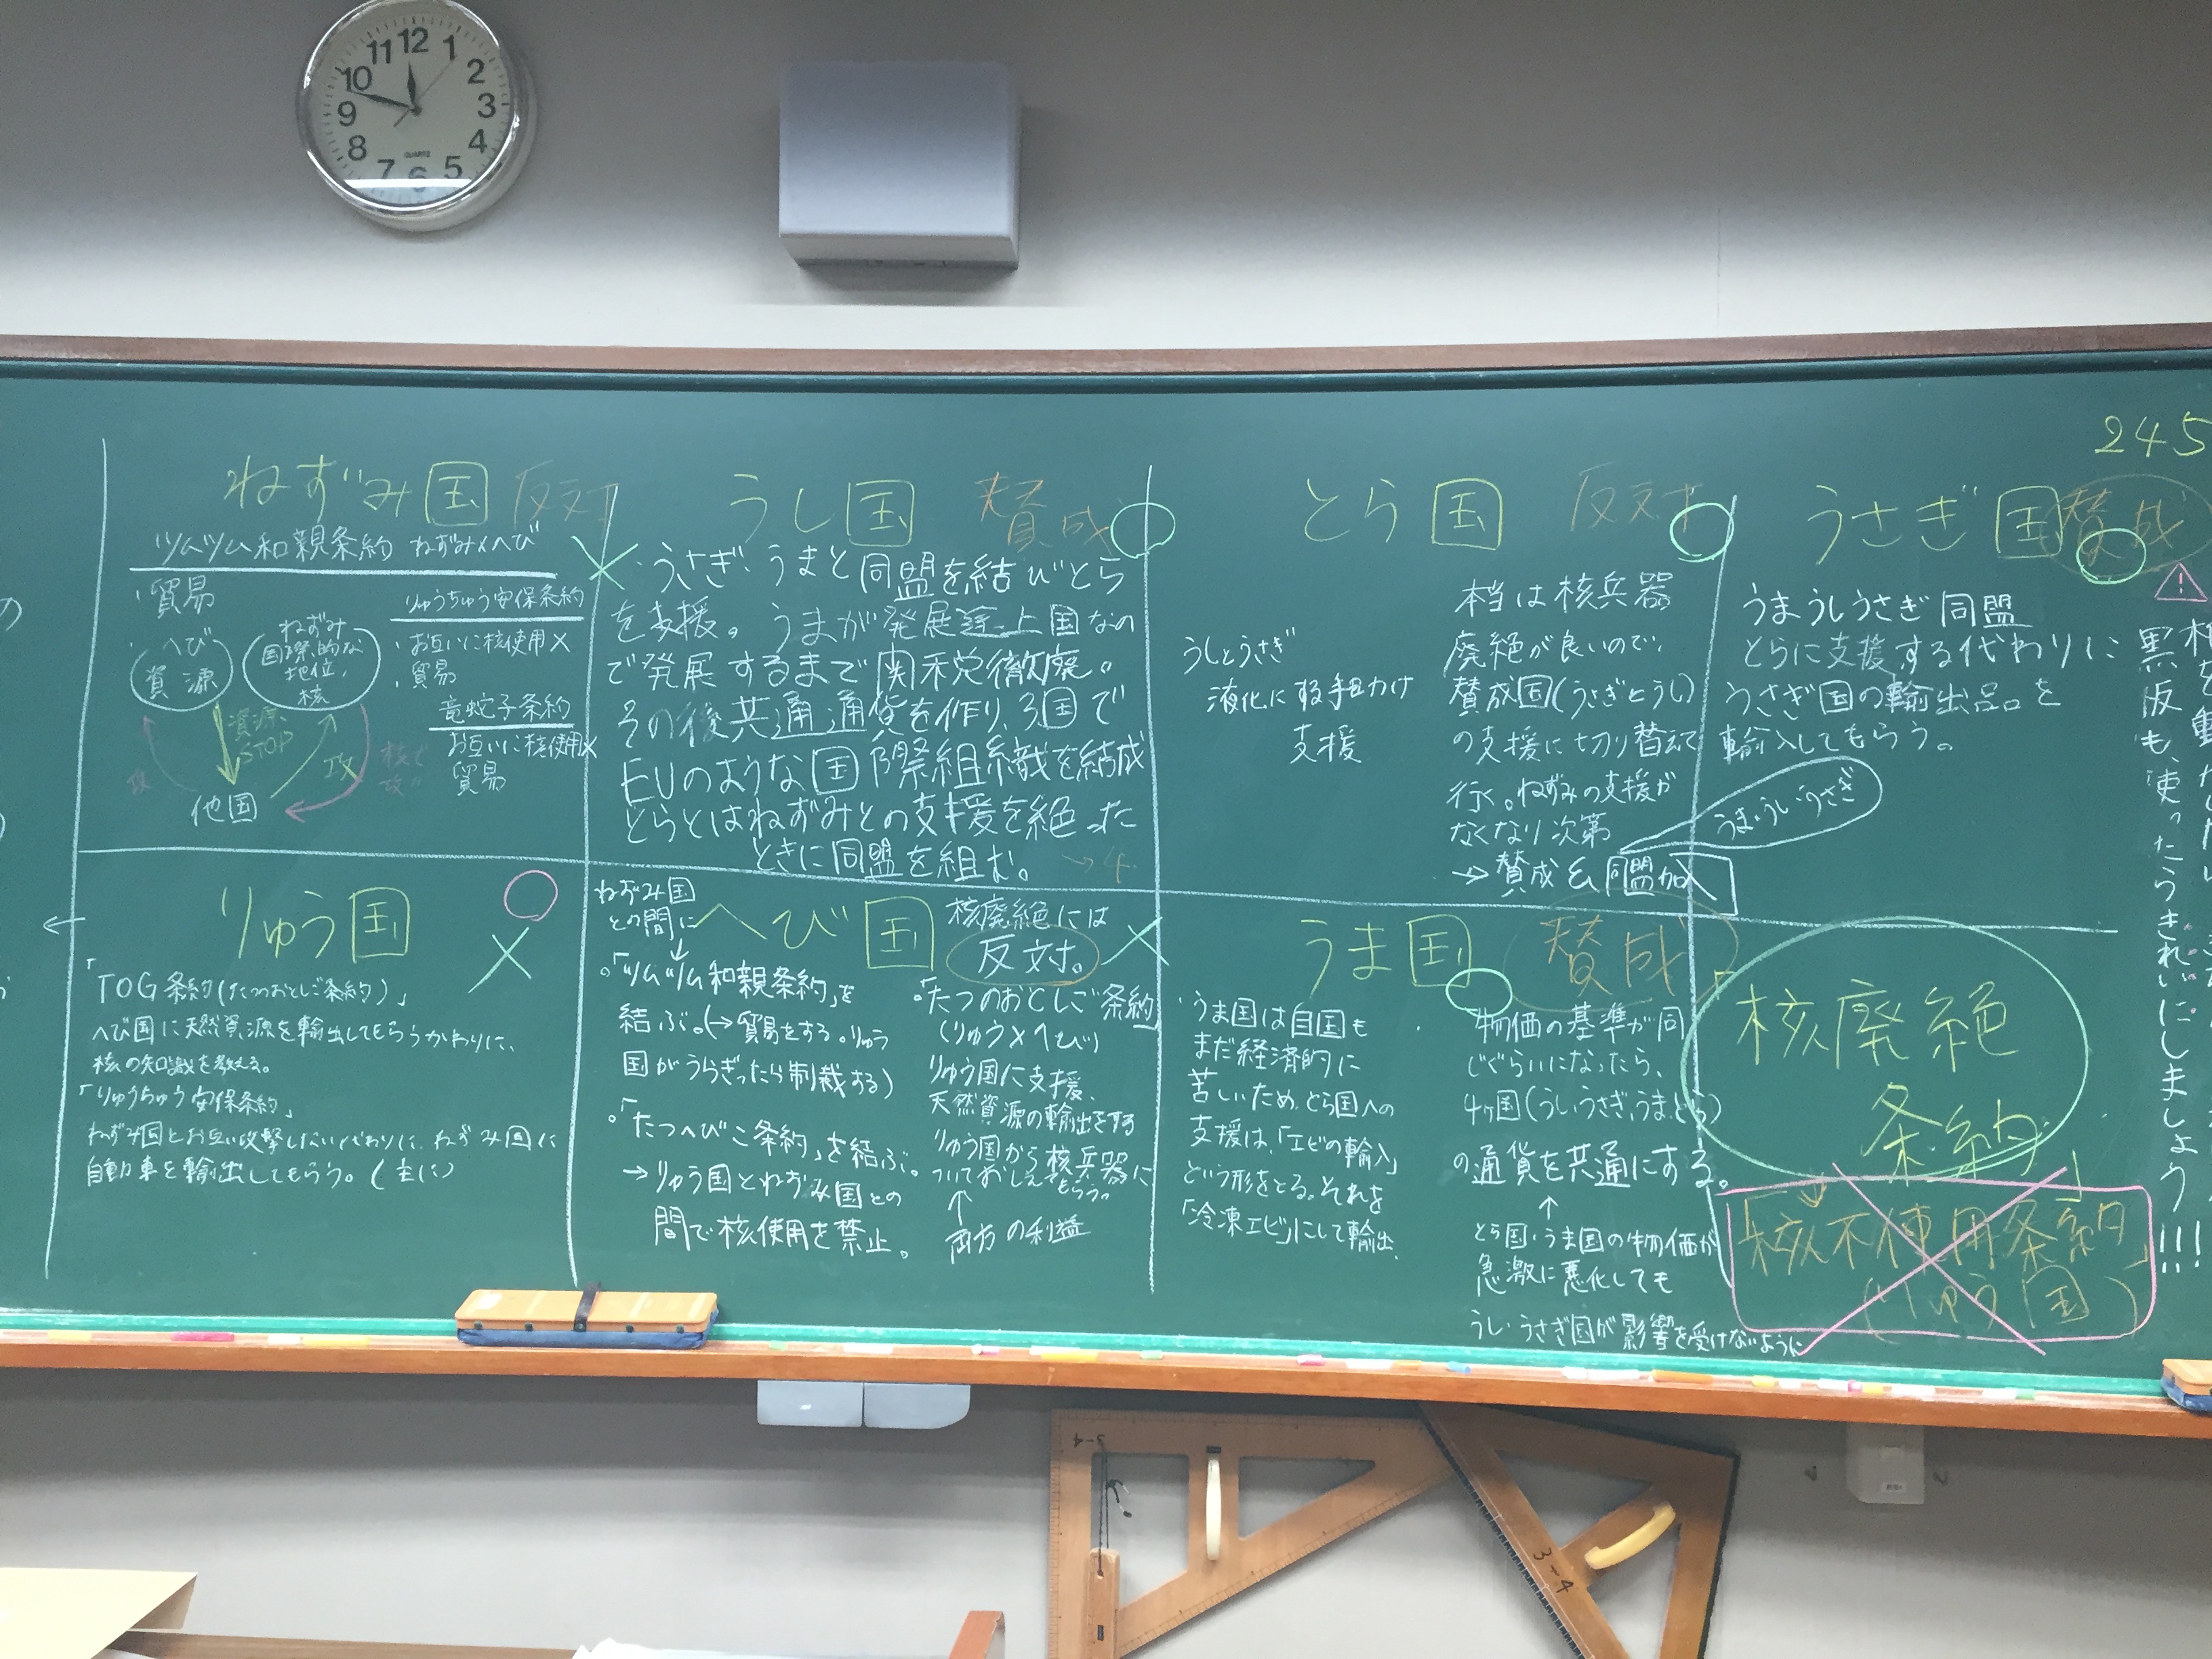 11 12 1
10 2
9 3
8 4
7 6 5
QUARTZ
245
ねずみ国 反対
ツムツム和親条約 ねずみ×へび
・貿易
へび
資源
ねずみ
国際的な
地位,
核
資源
STOP
攻
核で
攻
他国
りゅうちゅう安保条約
・お互いに核使用×
・貿易
竜蛇子条約
お互いに核使用×
貿易
うし国 賛成
・うさぎ・うまと同盟を結びとら
を支援。うまが発展途上国なの
で発展するまで関税徹廃。
その後共通通貨を作り、3国で
EUのような国際組織を結成
とらとはねずみとの支援を絶った
ときに同盟を組む。
とら国 反対
うしとうさぎ
液化にする手助け
支援
本当は核兵器
廃絶が良いので、
賛成国(うさぎとうし)
の支援に切り替えて
行く。ねずみの支援が
なくなり次第
→賛成&同盟加入
うま・うし・うさぎ
うさぎ国 賛成
うまうしうさぎ同盟
とらに支援する代わりに
うさぎ国の輸出品を
輸入してもらう。
りゅう国
「TOG条約(たつのおとしご条約)」
へび国に天然資源を輸出してもらうかわりに、
核の知識を教える。
「りゅうちゅう安保条約」
ねずみ国とお互い攻撃しない代わりに、ねずみ国に
自動車を輸出してもらう。(主に)
へび国
核廃絶には
反対。
ねずみ国
との間に
↓
。「ツムツム和親条約」を
結ぶ。(→貿易をする。りゅう
国がうらぎったら制裁する)
。「たつへびこ条約」を結ぶ。
→りゅう国とねずみ国との
間で核使用を禁止。
。「たつのおとしご条約
(りゅう×へび)
りゅう国に支援、
天然資源の輸出をする
りゅう国から核兵器に
ついておしえてもらう。
↑
両方の利益
うま国 賛成
・うま国は自国も
まだ経済的に
苦しいため、とら国への
支援は、「エビの輸入」
という形をとる。それを
「冷凍エビ」にして輸出、
・物価の基準が同
じぐらいになったら、
4ヶ国(うし,うさぎ,うま,とら)
の通貨を共通にする。
↑
とら国・うま国の物価が
急激に悪化しても
うし・うさぎ国が影響を受けないように
「核廃絶
条約」
「核不使用条約」
(りゅう国)
黒板も、使ったらきれいにしましょう!!!
3-4
3-4